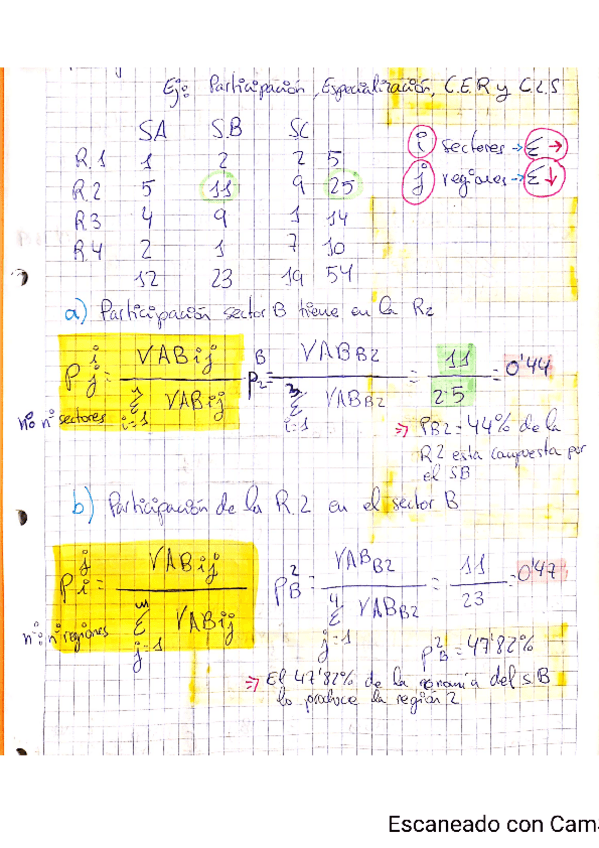 Ej: Participación, Especialización, C.E.R y C.L.S
SA SB SC
R.1 1 2 2 5
R.2 5 11 9 25
R3 4 9 1 14
R.4 2 1 7 10
12 23 19 54
i sectores → Σ →
j regiones → Σ ↓
a) Participación sector B tiene en la R2
P i j = VABij / Σ i=1 n VABij
P B 2 = VAB B2 / Σ i=1 3 VAB B2 = 11 / 25 = 0'44
n: nº sectores
⇒ PB2 = 44% de la
R2 esta compuesta por
el SB
b) Participación de la R.2 en el sector B
P j i = VABij / Σ j=1 m VABij
P 2 B = VAB B2 / Σ j=1 4 VAB B2 = 11 / 23 = 0'47
n: nº regiones
P 2 B = 47'82%
⇒ El 47'82% de la del s.B
lo produce la región 2
Escaneado con Cam